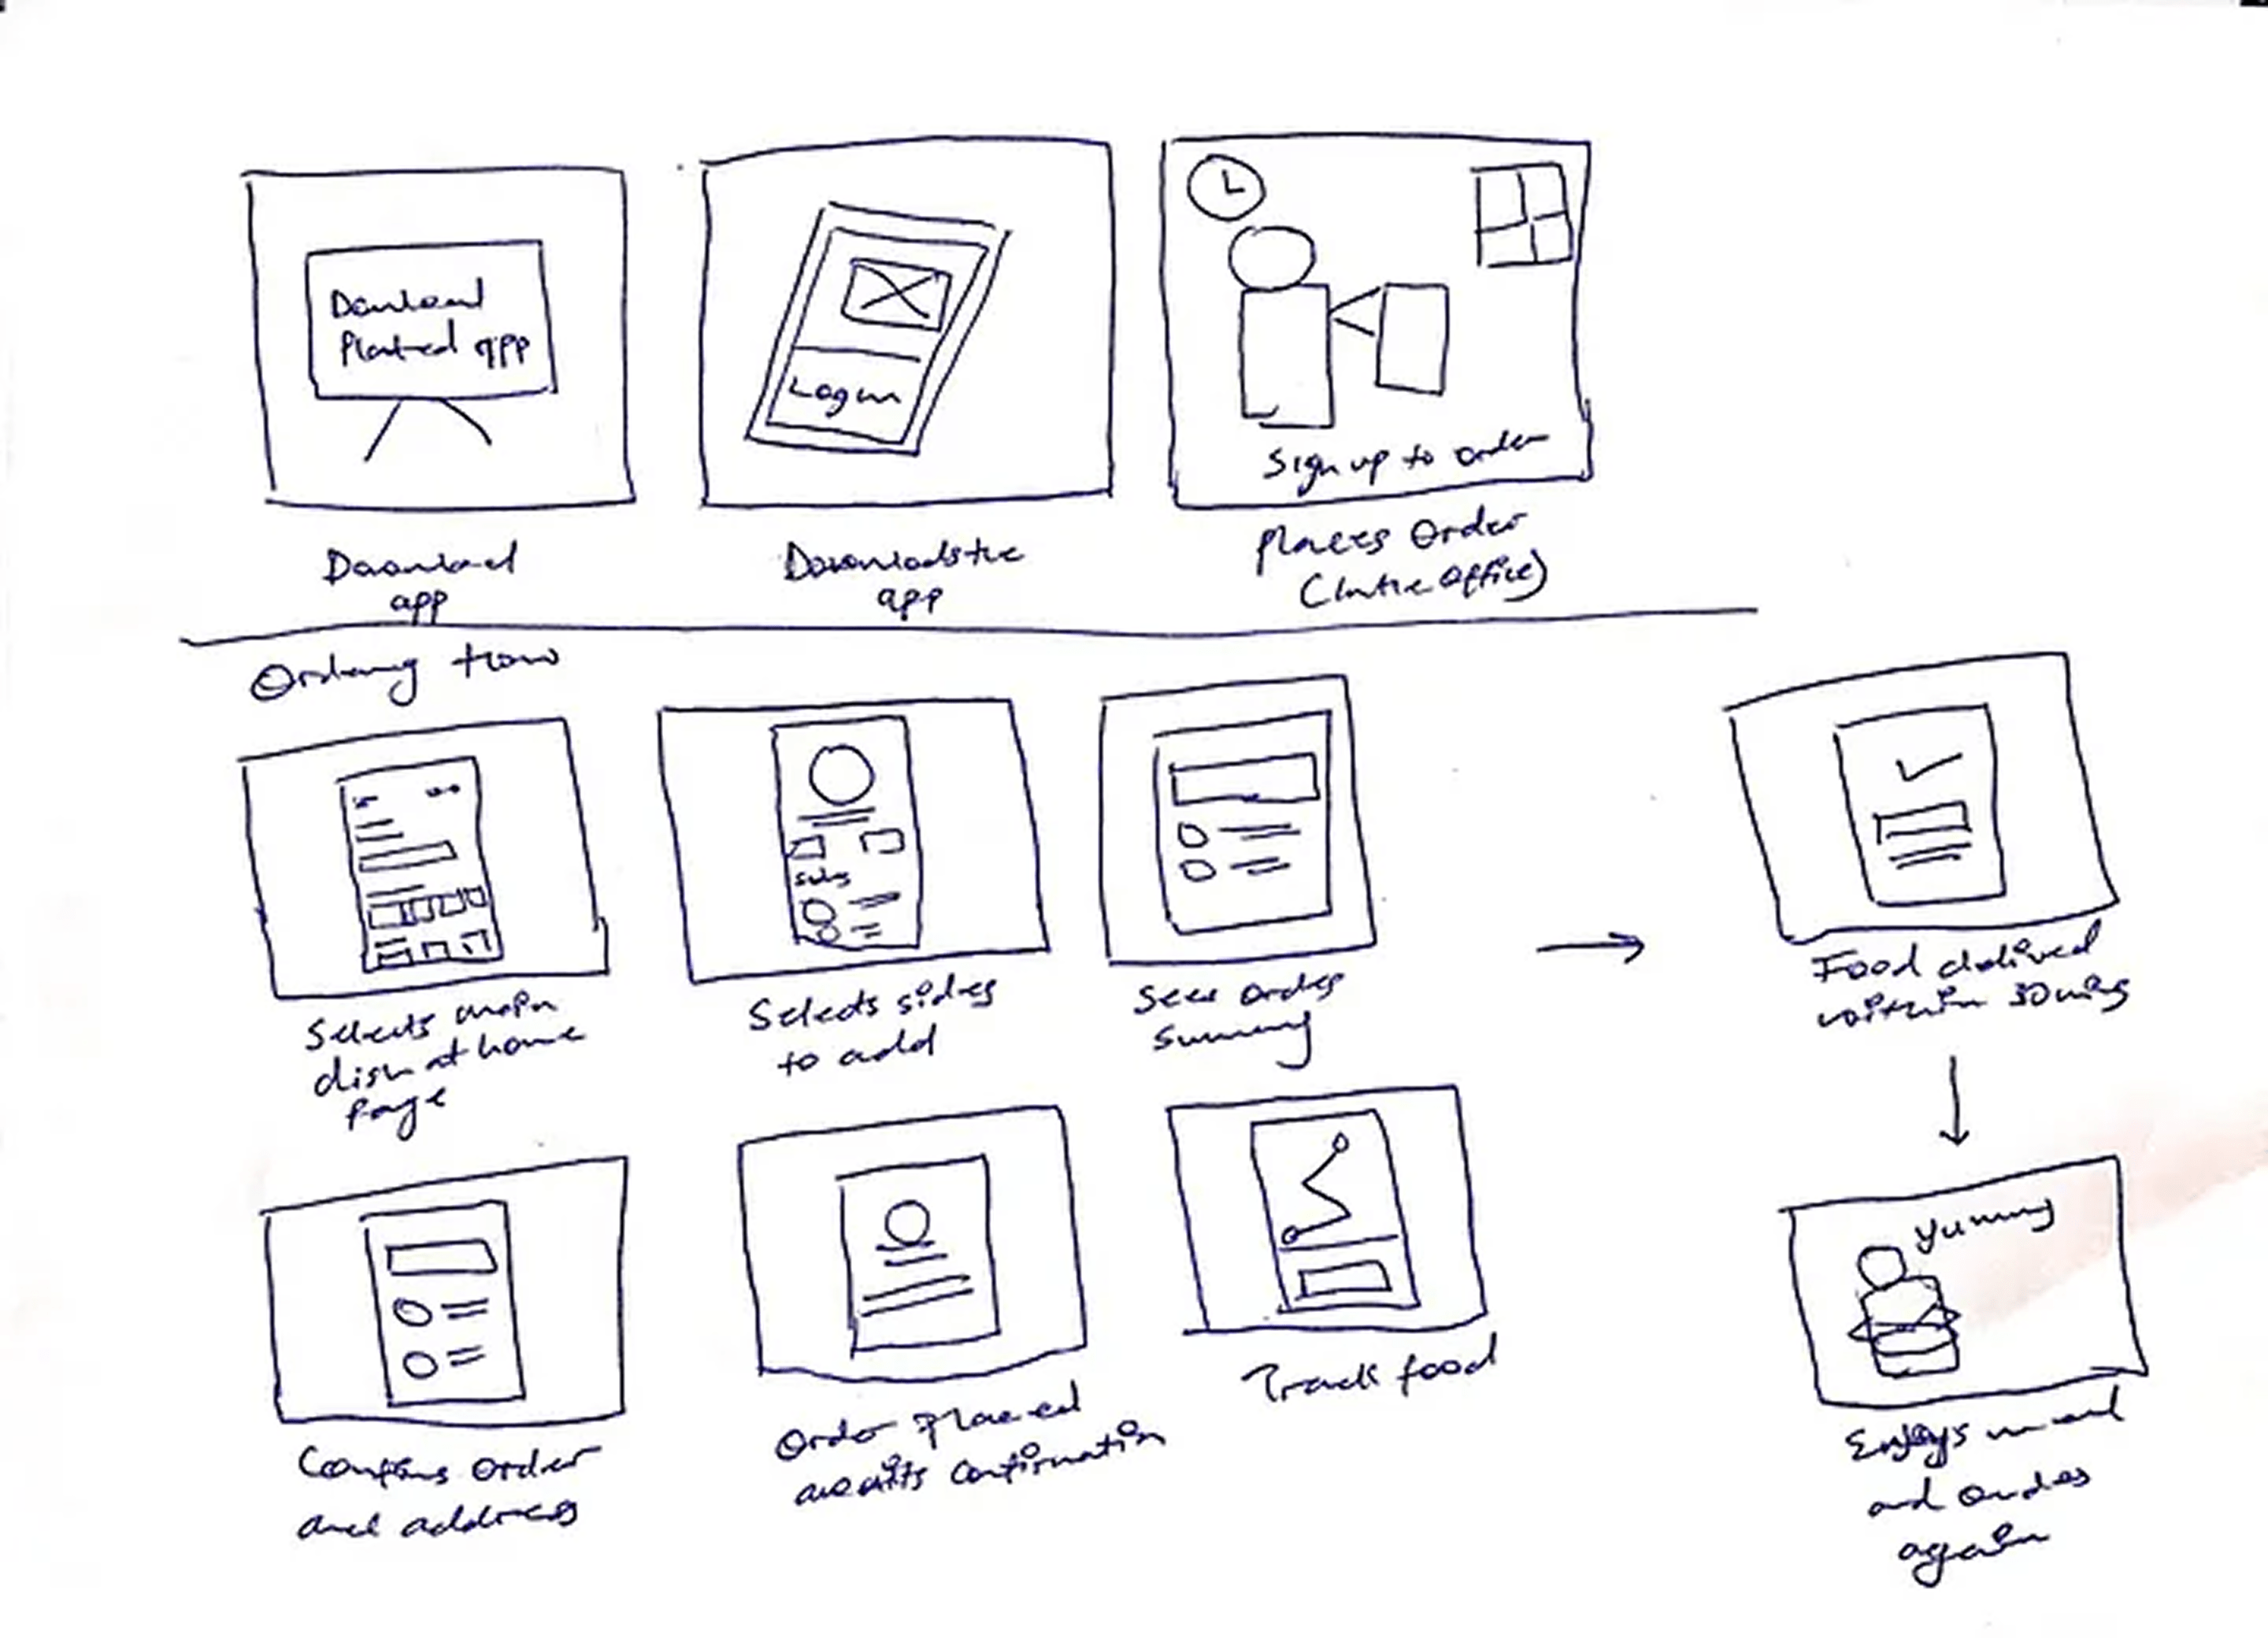 Download
Planted app
Download
app
Login
Downloads the
app
Sign up to order
Places Order
(In the office)
Ordering flow
Selects main
dish at home
Page
Sides
Selects sides
to add
Sees order
Summary
Food delived
within 30 mins
Confirms order
and address
Order placed
awaits confirmation
Track food
Yummy
Enjoys meal
and orders
again